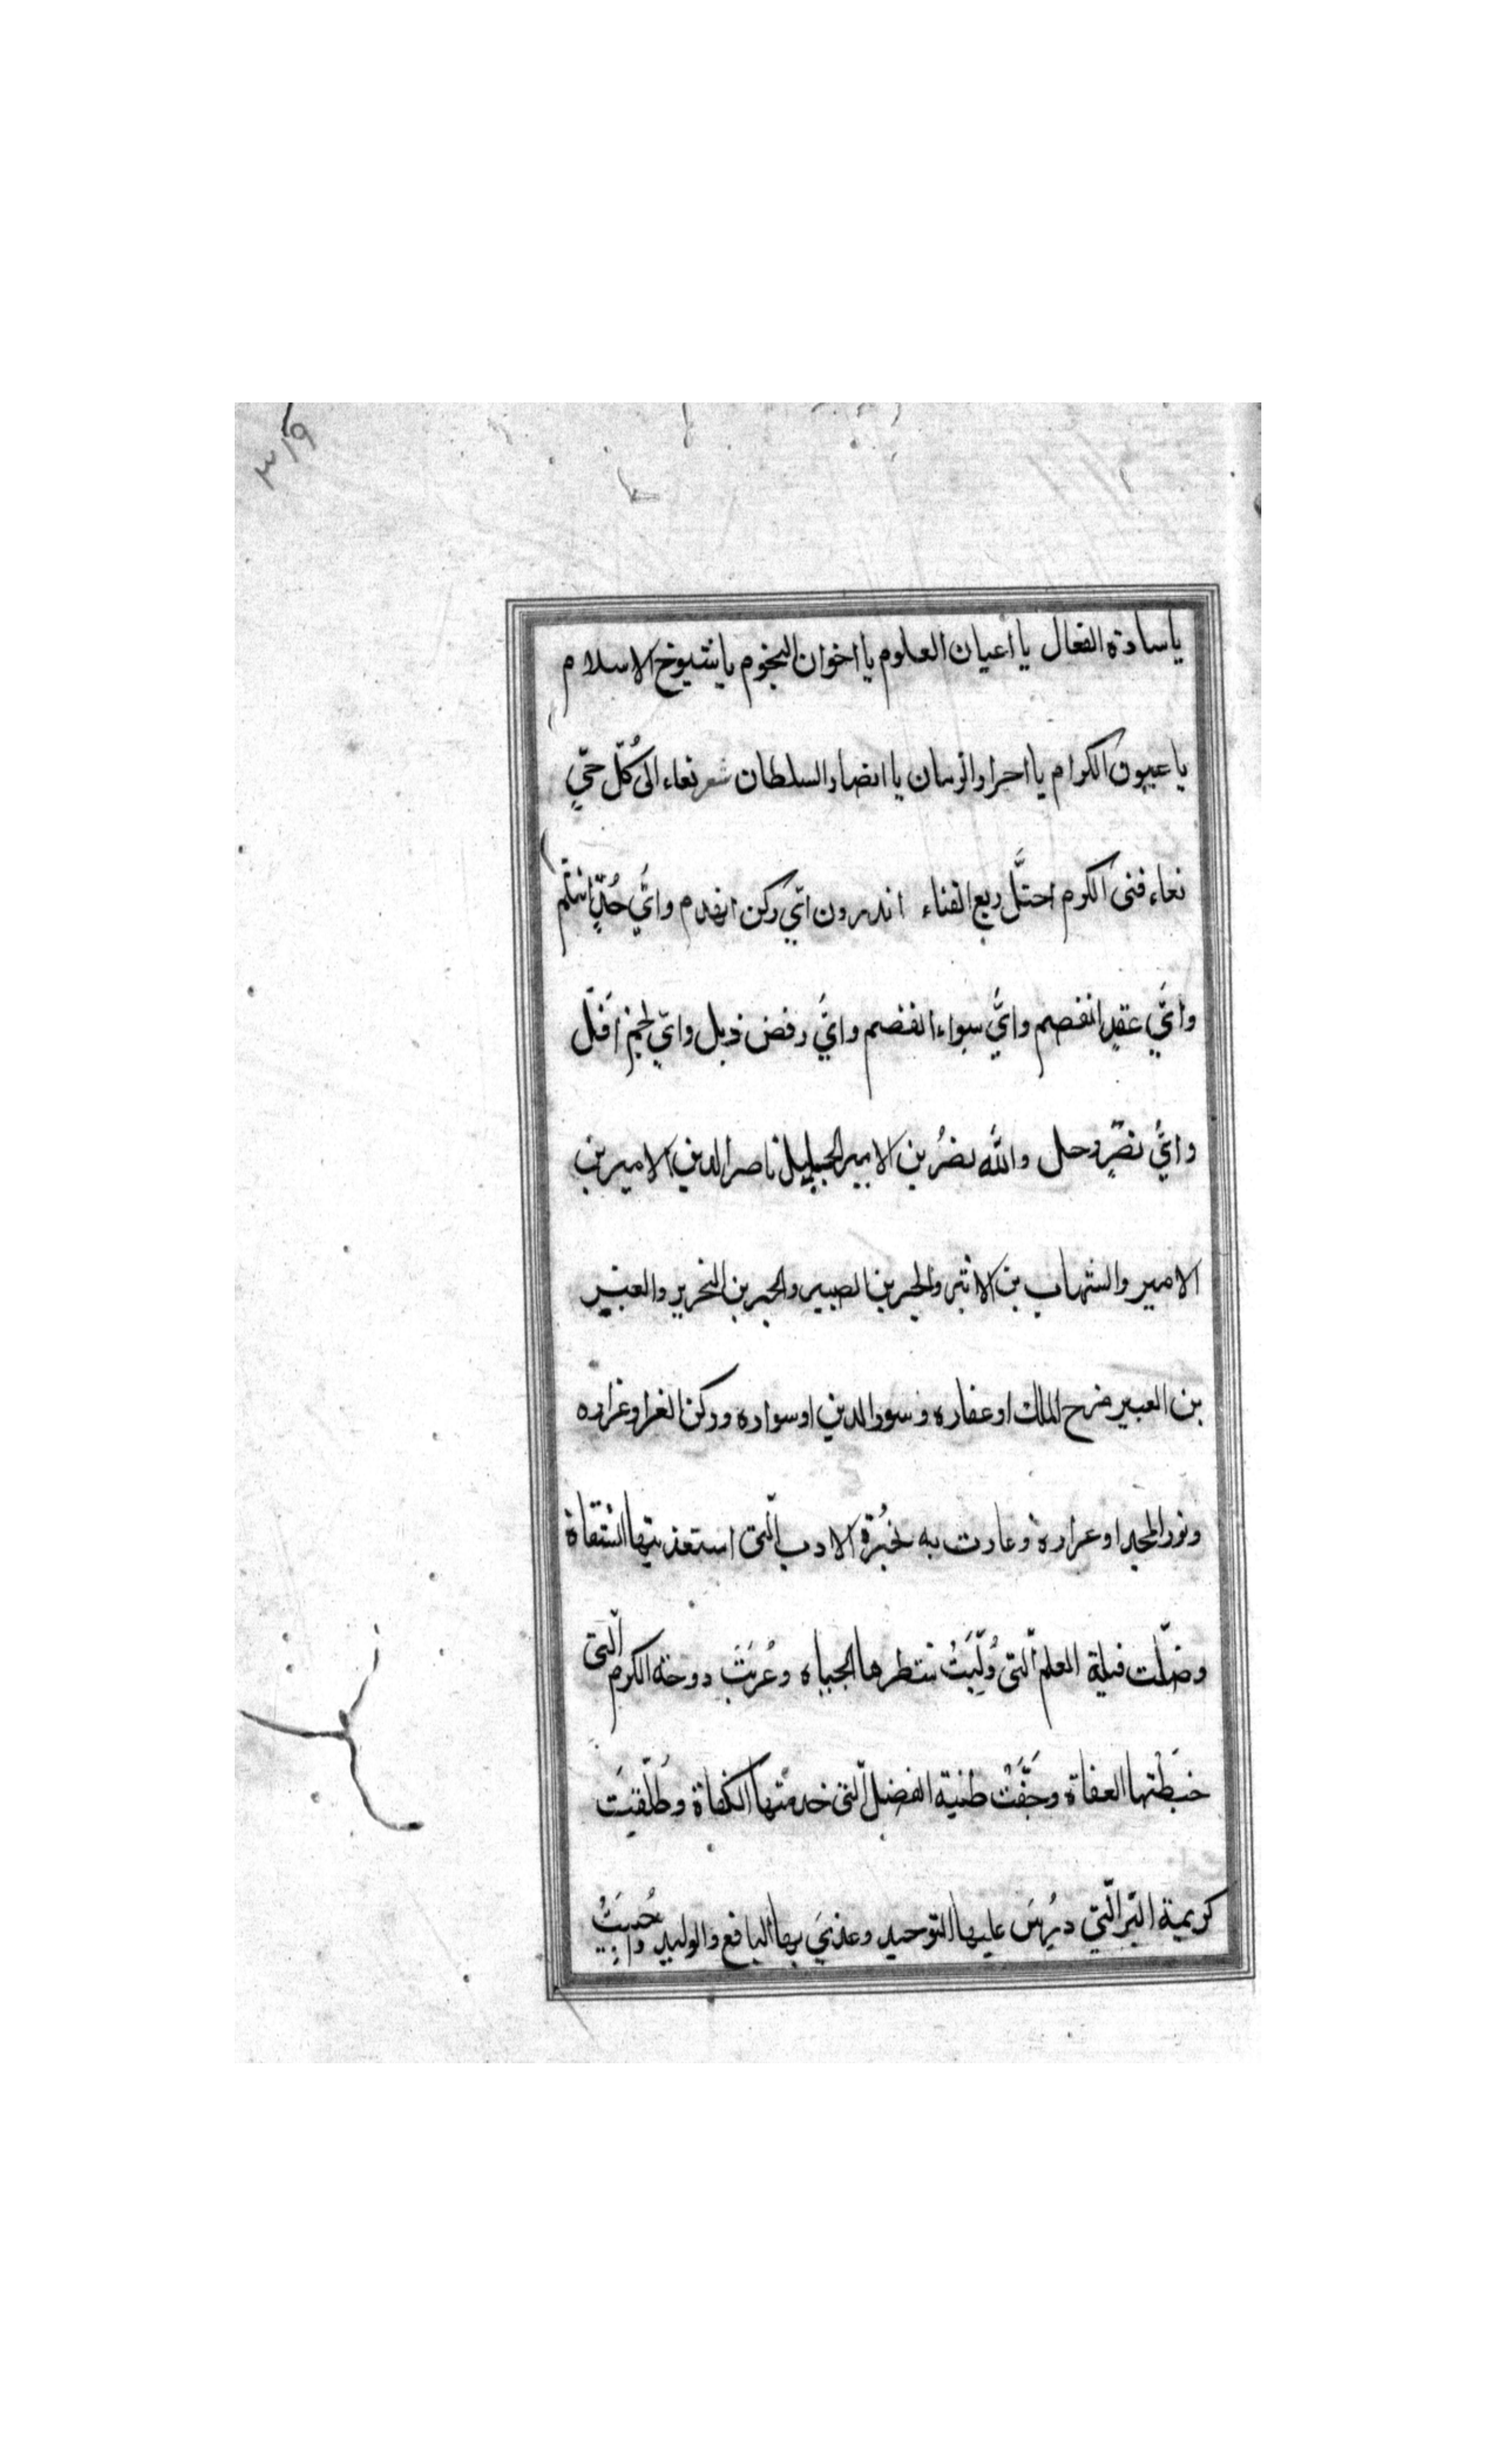 ٣١٩
يا سادة الفعال يا اعيان العلوم يا اخوان النجوم يا شيوخ الاسلام
يا عيون الكرام يا احرار الزمان يا انصار السلطان شعر نعاء الى كُلّ حيّ
نعاء فتى الكرم احتلَّ ربع الفناء اتدرون ايّ ركن انهدم وايُّ حُدٍّ انثلم
وايّ عقدٍ انفصم وايُّ سواء انفصم وايُّ رفض ذبل وايّ نجم أفَل
وايُّ نصرٍ رحل والله نصرُ بن الامير الجليل ناصر الدين الامير بن
الامير والشهاب بن الاثير والحبر بن الصبير والحبر بن النحرير والعنبر
بن العبير صرح الملك او عقاره وسور الدين او سواره وركن الغرا وغراره
ونور المجد او عراره وغارت به الادب الّتى استعذبتها السّقاة
وضلّت قبلة العلم الّتى وُلّيَتْ شطرها الجباه وعُرّيَتْ دوحة الكرم الّتى
خبَطَتها العفاة وجَفَّتْ طنية الفضل الّتى خدمتها الكفاة وطُلّقَت
كريمة البّر الّتي دُرِسَ عليها التوحيد وغذيَ بها اليافع والوليد